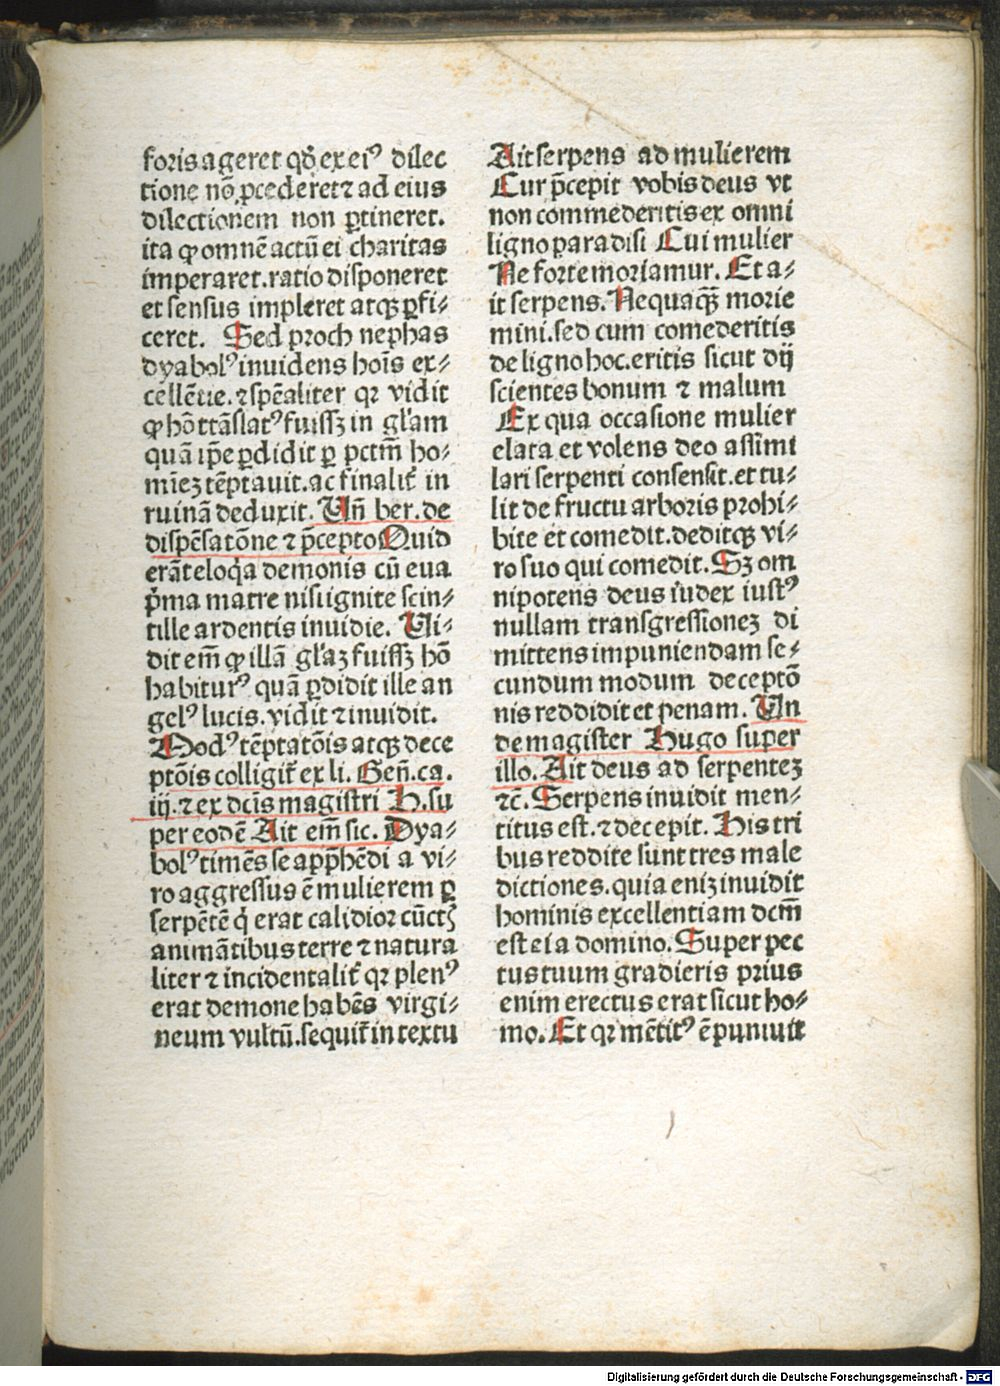 foris ageret qď ex eiꝰ dilec
tione nō ꝓcederet ⁊ ad eius
dilectionem non ꝑtineret.
ita ꝙ omnē actū ei charitas
imperaret. ratio disponeret
et sensus impleret atqꝫ ꝑfi⸗
ceret. Sed proch nephas
dyabolꝰ invidens hoīs ex⸗
cellētie. ⁊ spēaliter qꝛ vidit
ꝙ hō trāslatꝰ fuissꝫ in gl'am
quā ip̄e ꝑdidit ꝑ pctm̄ ho⸗
mīeꝫ tēptavit. ac finalit̄ in
ruinā deduxit. Un̄ ber. de
dispēsatōne ⁊ p̄cepto Quid
erāt eloq̇a demonis cū eua
p̄ma matre nisi ignite scin⸗
tille ardentis invidie. Vi⸗
dit em̄ ꝙ illā gl'aꝫ fuissꝫ hō
habiturꝰ quā ꝑdidit ille an
gelꝰ lucis. vidit ⁊ invidit.
Modꝰ tēptatōis atqꝫ dece
ptōis colligit̄ ex li. Gen̄. ca.
iij. ⁊ ex dcīs magistri H. su
per eodē Ait em̄ sic. Dya⸗
bolꝰ timēs se app̄hēdi a vi⸗
ro aggressus ē mulierem ꝑ
serpētē q̇ erat calidior cūctꝭ
animātibus terre ⁊ natura
liter ⁊ incidentalit̄ qꝛ plenꝰ
erat demone habēs virgi⸗
neum vultū. sequit̄ in textu
Ait serpens ad mulierem
Cur p̄cepit vobis deus vt
non commederitis ex omni
ligno paradisi Cui mulier
Ne forte moriamur. Et a⸗
it serpens. Nequaqꝫ̄ morie
mini. sed cum comederitis
de ligno hoc. eritis sicut dij
scientes bonum ⁊ malum
Ex qua occasione mulier
elata et volens deo assimi
lari serpenti consensit. et tu⸗
lit de fructu arboris prohi⸗
bite et comedit. deditqꝫ vi⸗
ro suo qui comedit. Sꝫ om
nipotens deus iudex iustꝰ
nullam transgressioneꝫ di
mittens impuniendam se⸗
cundum modum deceptō
nis reddidit et penam. Un
de magister Hugo super
illo. Ait deus ad serpenteꝫ
⁊c̄. Serpens invidit men⸗
titus est. ⁊ decepit. His tri
bus reddite sunt tres male
dictiones. quia eniꝫ invidit
hominis excellentiam dcm̄
est ei a domino. Super pec
tus tuum gradieris prius
enim erectus erat sicut ho⸗
mo. Et qꝛ mētitꝰ ē punivit
Digitalisierung gefördert durch die Deutsche Forschungsgemeinschaft - DFG